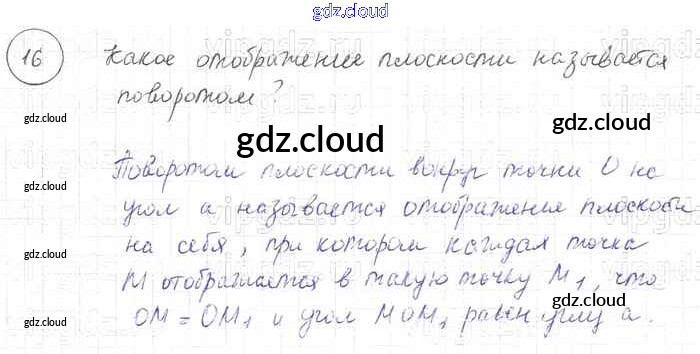 gdz.cloud
16 Какое отображение плоскости называется
поворотом?
gdz.cloud
gdz.cloud
gdz.cloud
gdz.cloud
Поворотом плоскости вокруг точки O на
угол a называется отображение плоскости
gdz.cloud
gdz.cloud
на себя, при котором каждая точка
M отображается в такую точку M₁, что
OM = OM₁ и угол MOM₁ равен углу a.
gdz.cloud
gdz.cloud
gdz.cloud